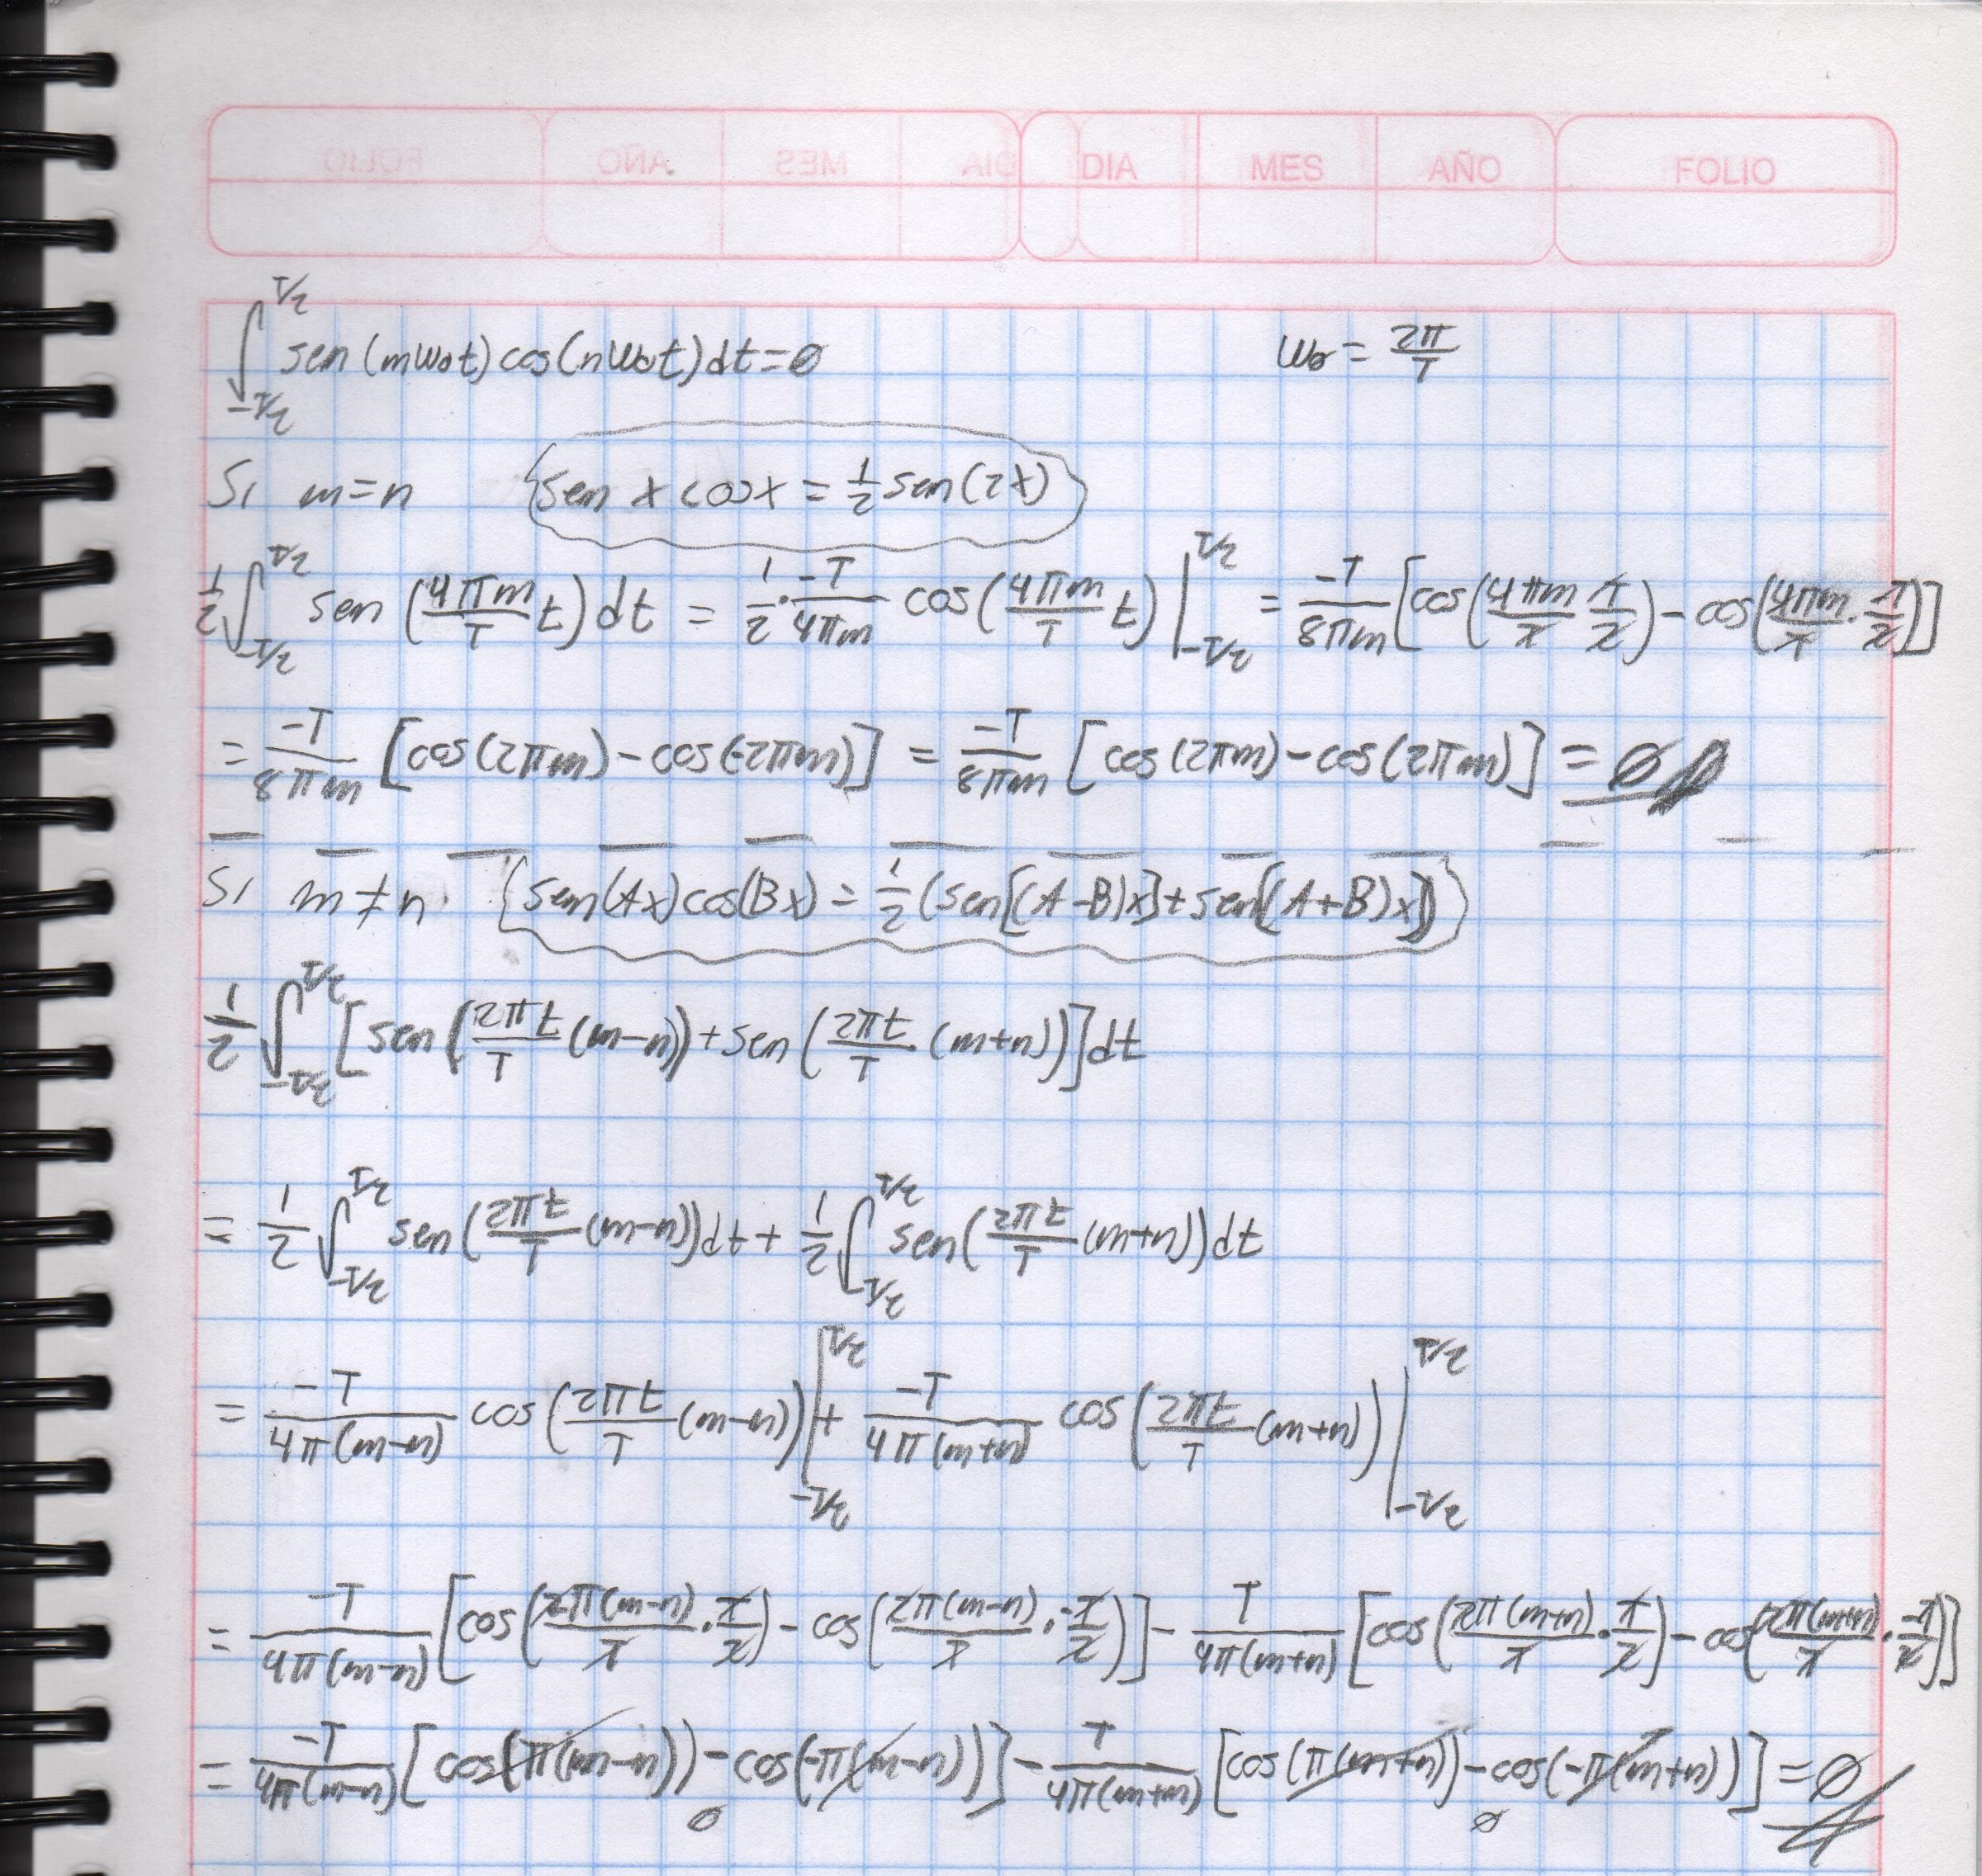 FOLIO AÑO MES DIA DIA MES AÑO FOLIO
∫_{-T/2}^{T/2} sen(mω₀t)cos(nω₀t)dt=0 ω₀ = 2π/T
Si m=n sen x cos x = 1/2 sen(2x)
1/2 ∫_{-T/2}^{T/2} sen(4πm/T t)dt = 1/2 · -T/4πm cos(4πm/T t) |_{-T/2}^{T/2} = -T/8πm [cos(4πm/T T/2) - cos(4πm/T · -T/2)]
= -T/8πm [cos(2πm) - cos(-2πm)] = -T/8πm [cos(2πm) - cos(2πm)] = 0
Si m≠n. sen(Ax)cos(Bx) = 1/2 (sen[(A-B)x] + sen[(A+B)x])
1/2 ∫_{-T/2}^{T/2} [sen(2πt/T (m-n)) + sen(2πt/T (m+n))]dt
= 1/2 ∫_{-T/2}^{T/2} sen(2πt/T (m-n))dt + 1/2 ∫_{-T/2}^{T/2} sen(2πt/T (m+n))dt
= -T/4π(m-n) cos(2πt/T (m-n)) |_{-T/2}^{T/2} + -T/4π(m+n) cos(2πt/T (m+n)) |_{-T/2}^{T/2}
= -T/4π(m-n) [cos(2π(m-n)/T · T/2) - cos(2π(m-n)/T · -T/2)] - T/4π(m+n) [cos(2π(m+n)/T · T/2) - cos(2π(m+n)/T · -T/2)]
= -T/4π(m-n) [cos(π(m-n)) - cos(-π(m-n))] - T/4π(m+n) [cos(π(m+n)) - cos(-π(m+n))] = 0
0 0